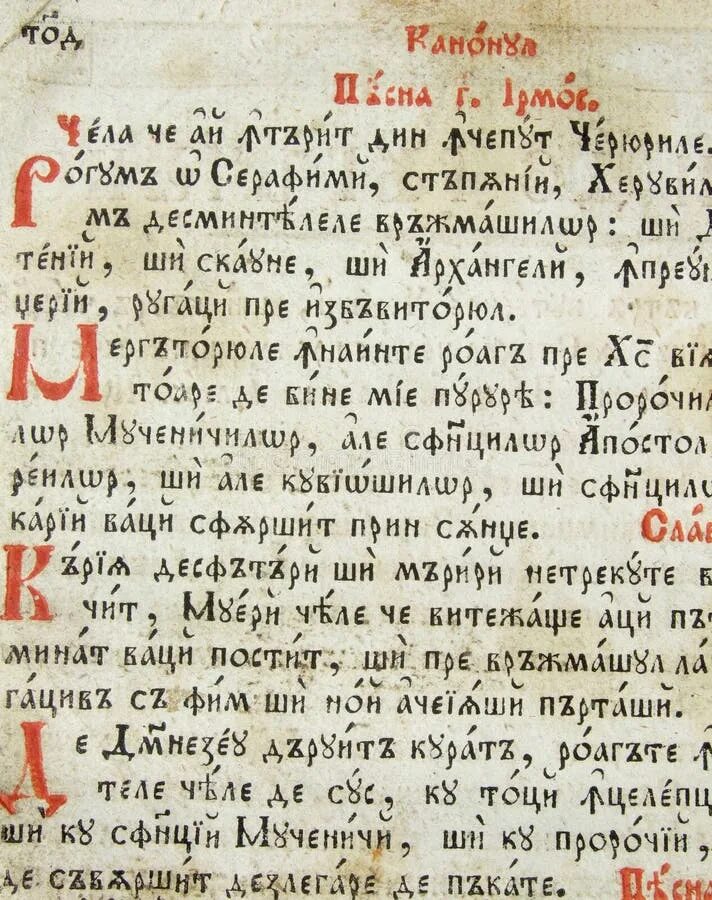 то́д
Кано́нꙋл
Пѣ́сна г҃. Ірмо́с.
Че́ла че а҆й ꙟ҆търи́т дин ꙟ҆чепꙋ́т Че́рюриле.
Ро́гꙋмъ ѿ Серафи́мй, стъпѫні́й, Херꙋви́м
мъ десминтѣ́леле врѫжма́шилѡр : шѝ
те́нїй, шѝ ска́ꙋне, шѝ А҆рха́нгелй, ꙟ҆преꙋ́н
џерїй, рꙋга́цй пре и҆збъвито́рюл.
Мергъто́рюле ꙟ҆наи́нте ро́агъ пре Хс҃ вїѧ́
то́аре де би́не мі́е пꙋ́рꙋрѣ : Проро́чил
лѡр Мꙋчени́чилѡр, а҆ле сфн҃цилѡр А҆по́стол
ре́илѡр, шѝ а҆ле кꙋвїѡ́шилѡр, шѝ сфн҃цилѡ
ка́рїй ва́цй сфѫрши́т прин сѫ́нџе. Сла́в
Къ́рїѧ десфътъ́рй шѝ мъри́рй нетрекꙋ́те в
чи́т, Мꙋе́рй чѣ́ле че витежа́ще а҆цй пъ
мина́т ва́цй пости́т, шѝ пре врѫжма́шꙋл ла
га́цивъ съ фи́м шѝ но́й а҆чеїѧ́шй пърта́шй.
Де Дм҃незе́ꙋ дърꙋи́тъ кꙋра́тъ, ро́агъте ꙟ҆
теле чѣ́ле де сꙋ́с, кꙋ то́цй ꙟ҆целе́пц
шѝ кꙋ сфн҃цїй Мꙋчени́чй, шѝ кꙋ проро́чїй,
де съвѫрши́т дезлега́ре де пъка́те. Пѣ́сна